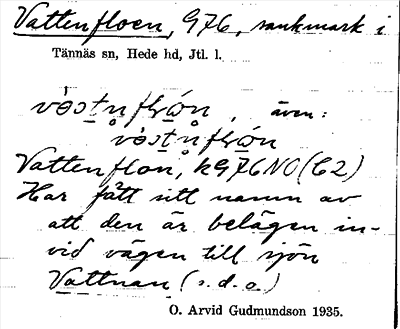 Vattenfloen, G76, sankmark i
Tännäs sn, Hede hd, Jtl. l.
, även:
Vattenflon, kG76NO(C2)
Har fått sitt namn av
att den är belägen in-
vid vägen till sjön
Vattnan (s.d.o.)
O. Arvid Gudmundson 1935.